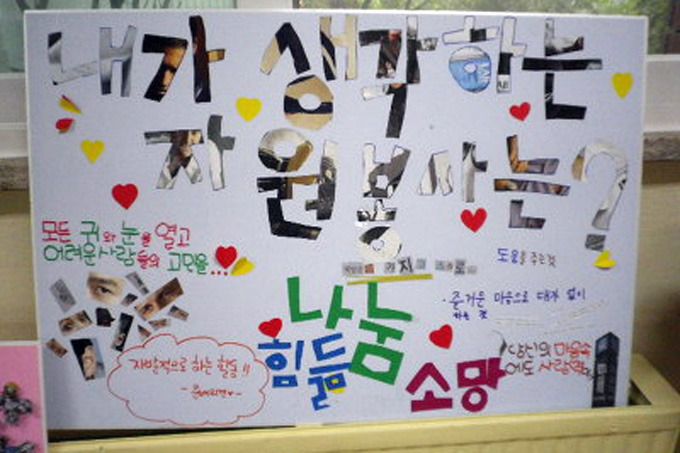 내가 생각하는
자원봉사는?
모든 귀와 눈을 열고
어려운 사람들의 고민을...
도움을 주는것
즐거운 마음으로 대가 없이
하는 것
나눔
힘듦
소망
자발적으로 하는 활동!!
당신의 마음속
에도 사랑